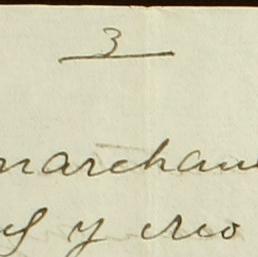 3
marchan
y creo